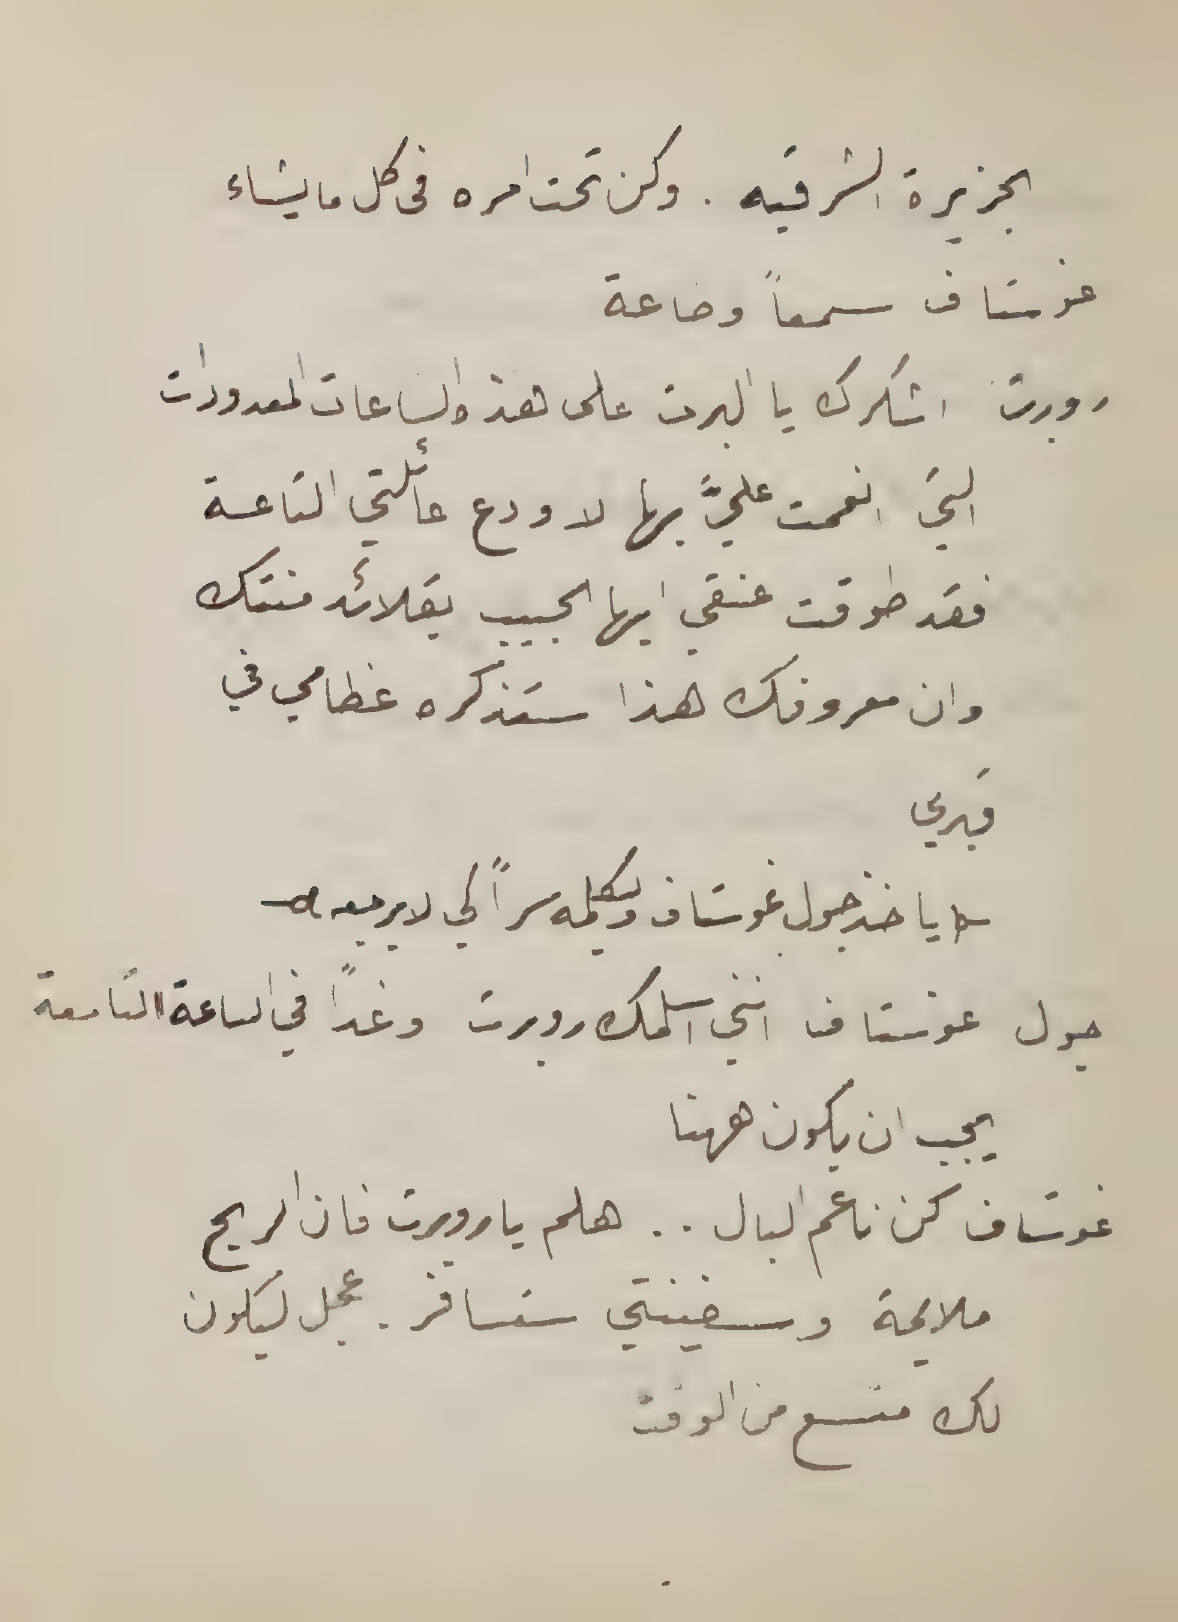 الجزيرة الشرقيه . وكن تحت امره فى كل ما يشاء
غوستاف سمعاً وضاعة
روبرت اشكرك يا البرت على هذه الساعات المعدودات
التي انعمت عليَّ بها لاودع عائلتي التاعسة
فقد طوقت عنقي ايها الحبيب بقلائد منتك
وان معروفك هذا ستذكره عظامي في
قبري
ياخذ جول غوستاف ويكلمه سراً لكي لا يرجعه
جول غوستاف انني اسلمك روبرت وغداً في الساعة التاسعة
يجب ان يكون ههنا
غوستاف كن ناعم البال .. هلم يا روبرت فان الريح
ملايمة وسفينتي ستسافر . عجل ليكون
لك متسع من الوقت